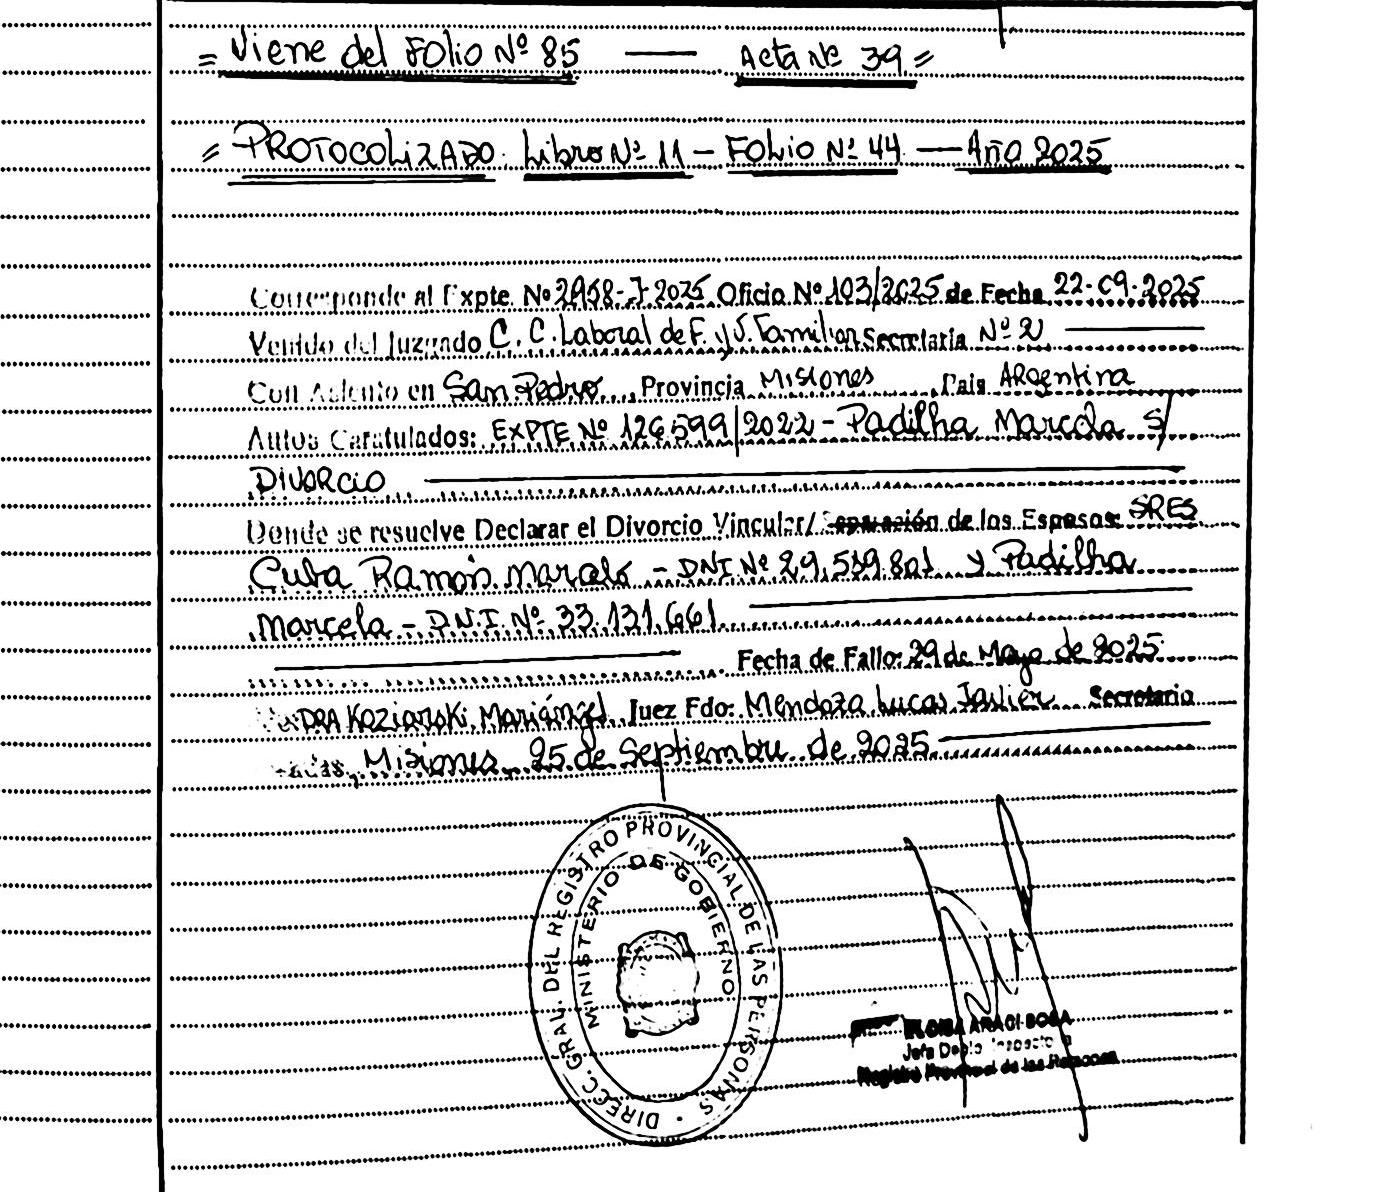 = Viene del Folio Nº 85 — Acta Nº 39 =
= PROTOCOLIZADO: Libro Nº 11 - FOLIO Nº 44 — Año 2025
Corresponde al Expte. Nº 2958-J-2025 Oficio Nº 103/2025 de Fecha 22-09-2025
Venido del Juzgado C. C. Laboral de F. y V. Familiar Secretaria Nº 2
Con Asiento en San Pedro, Provincia MISIONES, País ARgentina
Autos Caratulados: EXPTE Nº 126599/2022 - Padilha Marcela S/
DIVORCIO
Donde se resuelve Declarar el Divorcio Vincular/ Separación de los Esposos: SRES
Cuba Ramón Marcelo - DNI Nº 29.539.801 y Padilha
Marcela - D.N.I. Nº 33.131.661
Fecha de Fallo: 29 de Mayo de 2025
DRA Koziarski Mariángel Juez Fdo: Mendoza Lucas Javier Secretario
Misiones, 25 de Septiembre de 2025
DIRECC. GRAL. DEL REGISTRO PROVINCIAL DE LAS PERSONAS
MINISTERIO DE GOBIERNO
ARACI
Jefa Depto.
Registro Provincial de las Personas